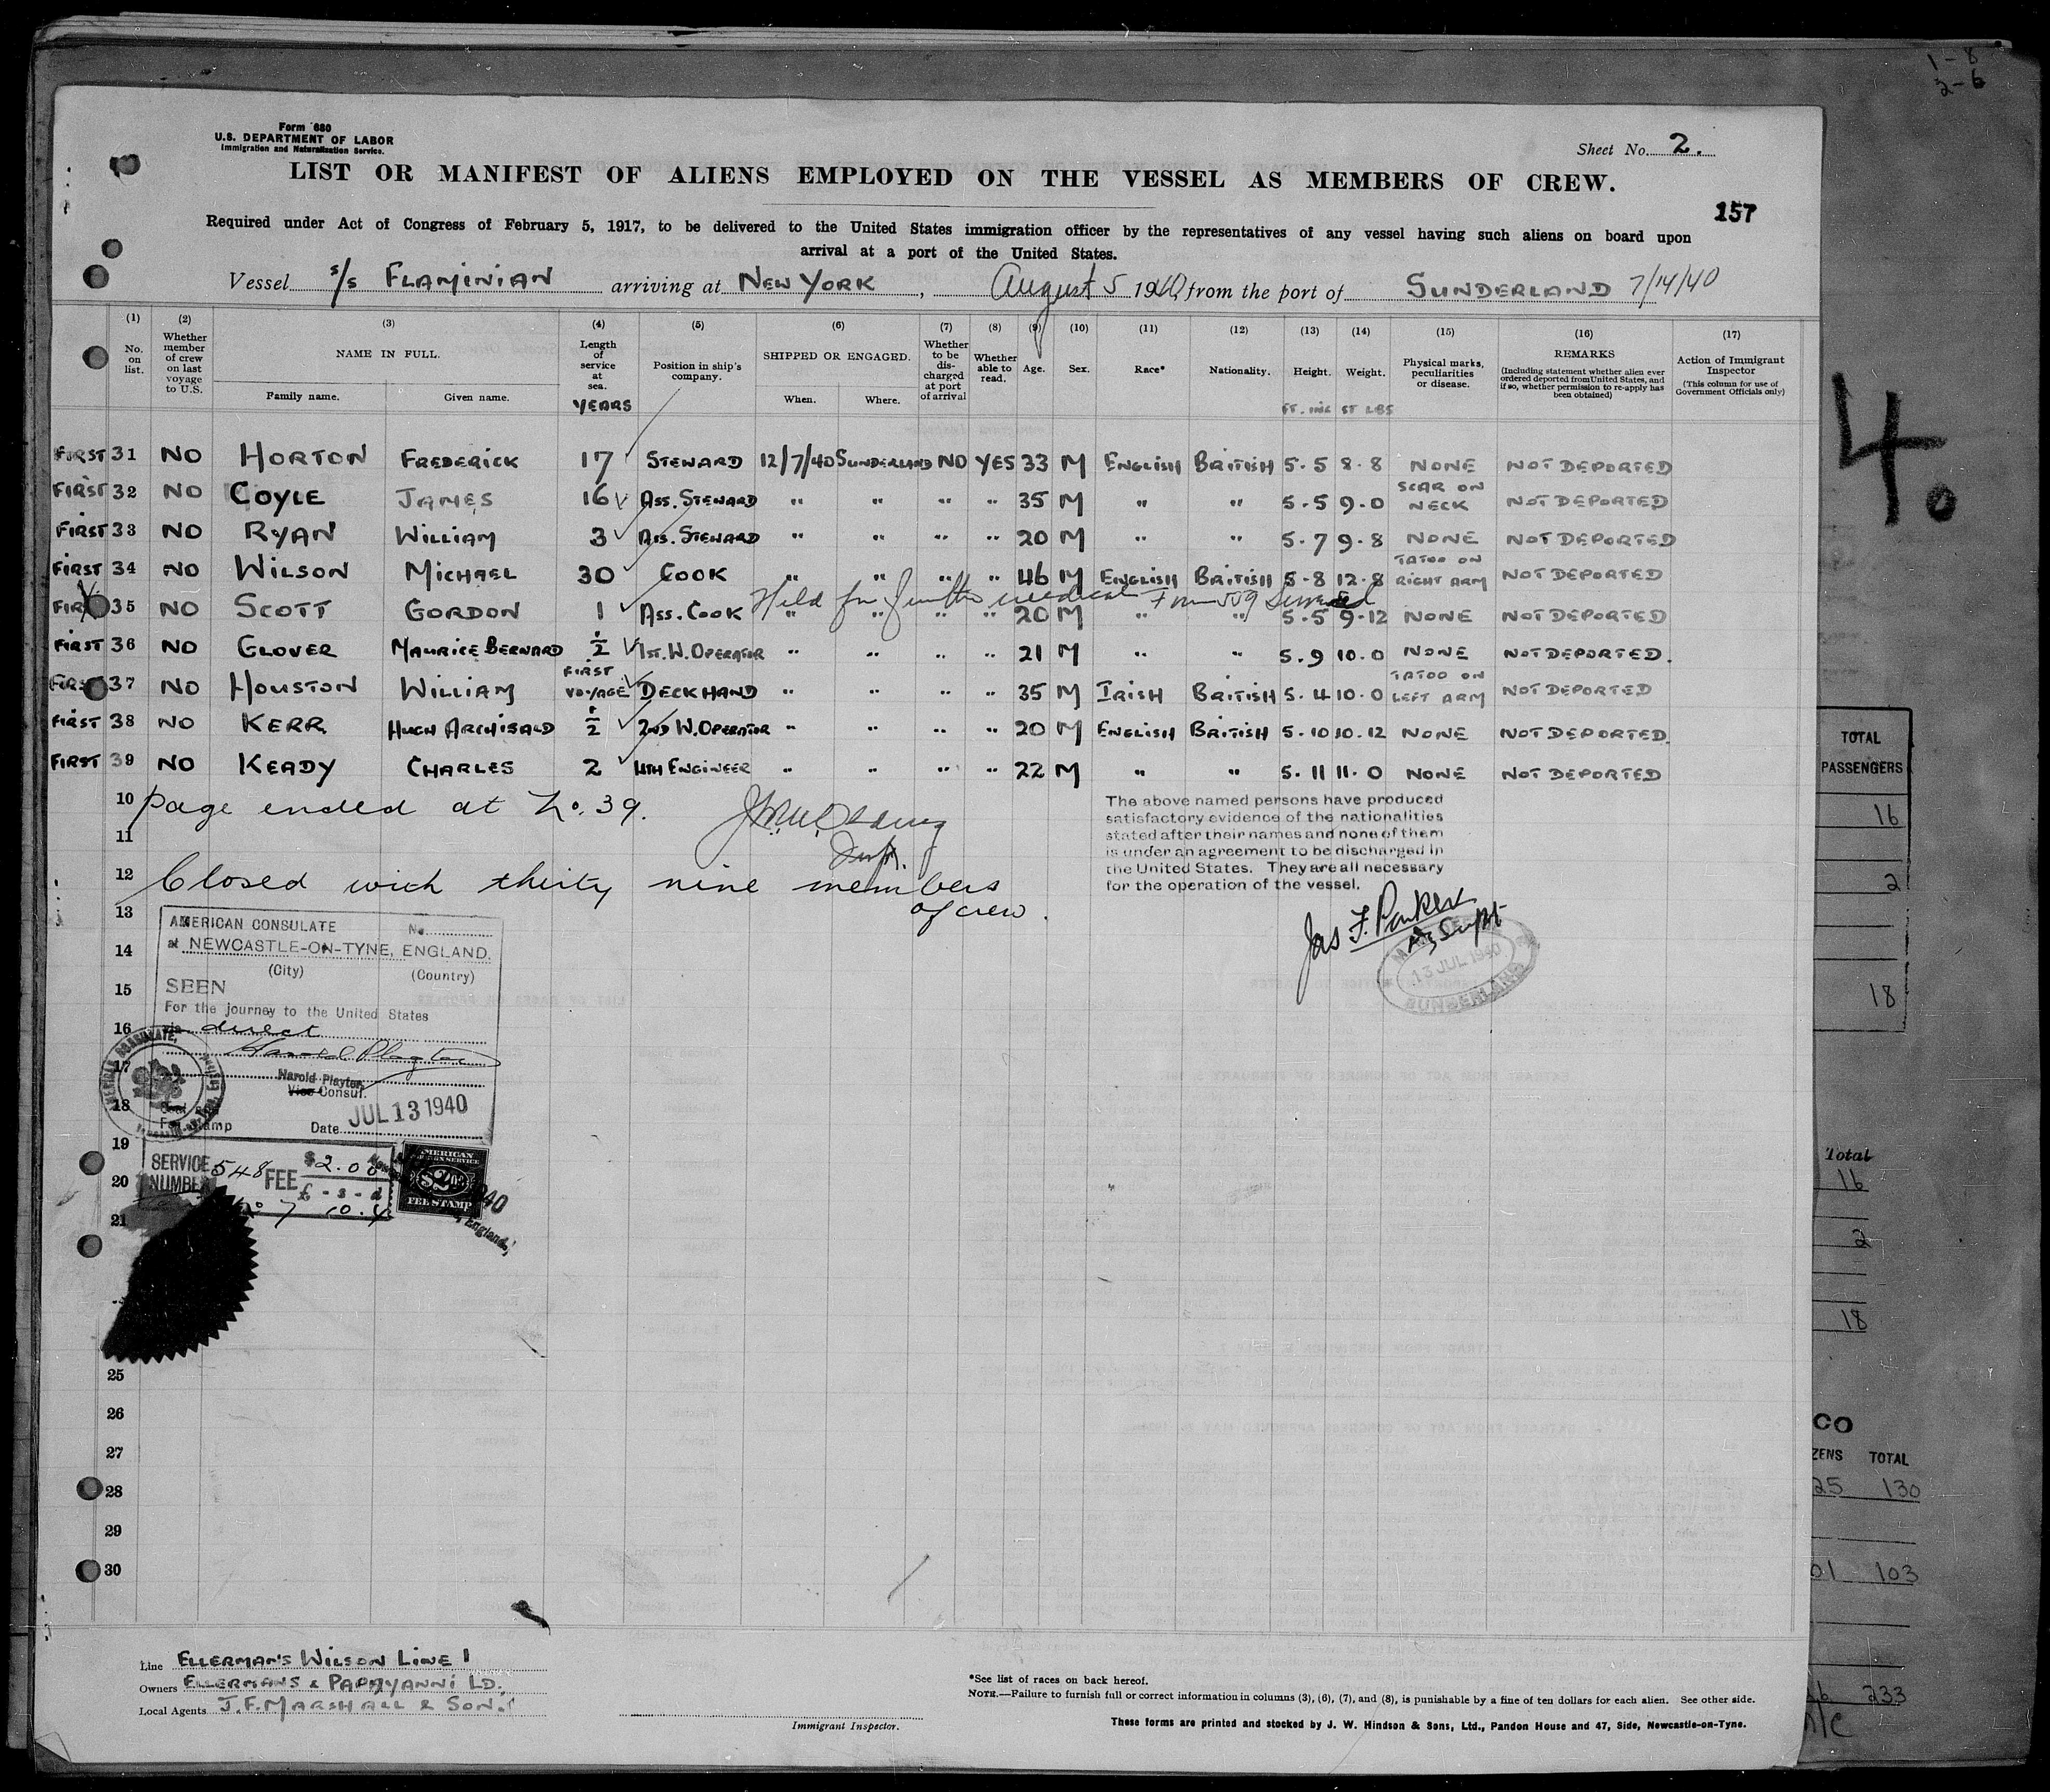 1-8
2-6
Form 680
U.S. DEPARTMENT OF LABOR
Immigration and Naturalization Service.
Sheet No. 2.
LIST OR MANIFEST OF ALIENS EMPLOYED ON THE VESSEL AS MEMBERS OF CREW.
157
Required under Act of Congress of February 5, 1917, to be delivered to the United States immigration officer by the representatives of any vessel having such aliens on board upon
arrival at a port of the United States.
Vessel s/s FLAMINIAN arriving at NEW YORK, August 5 1940 from the port of SUNDERLAND 7/14/40
(1) (2) (3) (4) (5) (6) (7) (8) (9) (10) (11) (12) (13) (14) (15) (16) (17)
No. on list.
Whether member of crew on last voyage to U.S.
NAME IN FULL.
Family name. Given name.
Length of service at sea.
YEARS
Position in ship's company.
SHIPPED OR ENGAGED.
When. Where.
Whether to be discharged at port of arrival
Whether able to read.
Age.
Sex.
Race*
Nationality.
Height.
FT. INS
Weight.
ST LBS
Physical marks, peculiarities or disease.
REMARKS
(Including statement whether alien ever ordered deported from United States, and if so, whether permission to re-apply has been obtained)
Action of Immigrant Inspector
(This column for use of Government Officials only)
FIRST 31 NO HORTON FREDERICK 17 STEWARD 12/7/40 SUNDERLAND NO YES 33 M ENGLISH BRITISH 5.5 8.8 NONE NOT DEPORTED
FIRST 32 NO COYLE JAMES 16 ASS. STEWARD " " " " 35 M " " 5.5 9.0 SCAR ON NECK NOT DEPORTED
FIRST 33 NO RYAN WILLIAM 3 ASS. STEWARD " " " " 20 M " " 5.7 9.8 NONE NOT DEPORTED
FIRST 34 NO WILSON MICHAEL 30 COOK " " " " 46 M ENGLISH BRITISH 5-8 12.8 TATOO ON RIGHT ARM NOT DEPORTED
Held for further medical Form 509 Served
FIRST 35 NO SCOTT GORDON 1 ASS. COOK " " " " 20 M " " 5.5 9-12 NONE NOT DEPORTED
FIRST 36 NO GLOVER MAURICE BERNARD 1/2 1ST. W. OPERATOR " " " " 21 M " " 5.9 10.0 NONE NOT DEPORTED.
FIRST 37 NO HOUSTON WILLIAM FIRST VOYAGE DECKHAND " " " " 35 M IRISH BRITISH 5.4 10.0 TATOO ON LEFT ARM NOT DEPORTED
FIRST 38 NO KERR HUGH ARCHIBALD 1/2 2ND W. OPERATOR " " " " 20 M ENGLISH BRITISH 5.10 10.12 NONE NOT DEPORTED.
FIRST 39 NO KEADY CHARLES 2 4TH ENGINEER " " " " 22 M " " 5.11 11.0 NONE NOT DEPORTED
10 page ended at No. 39.
11
12 Closed with thirty nine members
of crew.
The above named persons have produced
satisfactory evidence of the nationalities
stated after their names and none of them
is under an agreement to be discharged in
the United States. They are all necessary
for the operation of the vessel.
Jas F. Parker
Supt
13 JUL 1940
SUNDERLAND
13
14
15
16
17
18
19
20
21
25
26
27
28
29
30
AMERICAN CONSULATE No.
at NEWCASTLE-ON-TYNE, ENGLAND.
(City) (Country)
SEEN
For the journey to the United States
direct
Harold Playter
Harold Playter,
Vice Consul.
Fee Stamp
Date JUL 13 1940
SERVICE NUMBER 548 FEE $2.00
£ - s - d
10.4
AMERICAN
FOREIGN SERVICE
$2.00
FEE STAMP
England.
Line ELLERMAN'S WILSON LINE
Owners ELLERMANS & PAPAYANNI LD.
Local Agents J.F. MARSHALL & SON.
Immigrant Inspector.
*See list of races on back hereof.
NOTE.—Failure to furnish full or correct information in columns (3), (6), (7), and (8), is punishable by a fine of ten dollars for each alien. See other side.
These forms are printed and stocked by J. W. Hindson & Sons, Ltd., Pandon House and 47, Side, Newcastle-on-Tyne.
4.
TOTAL
PASSENGERS
16
2
18
Total
16
2
18
CO
ZENS TOTAL
25 130
01 103
233